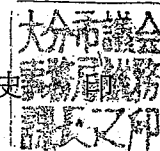 大分市議会
事務局総務
課長之印
史